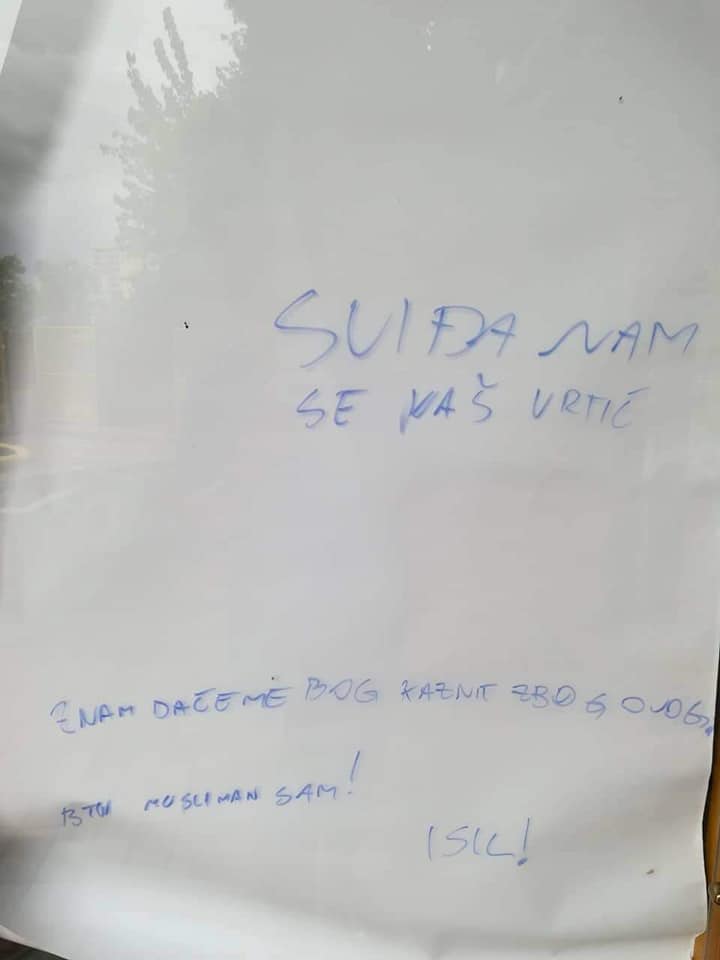 SVIĐA NAM
SE VAŠ VRTIĆ
ZNAM DAČEME BOG KAZNIT ZBOG OVOG.
BTW MUSLIMAN SAM!
ISIL!